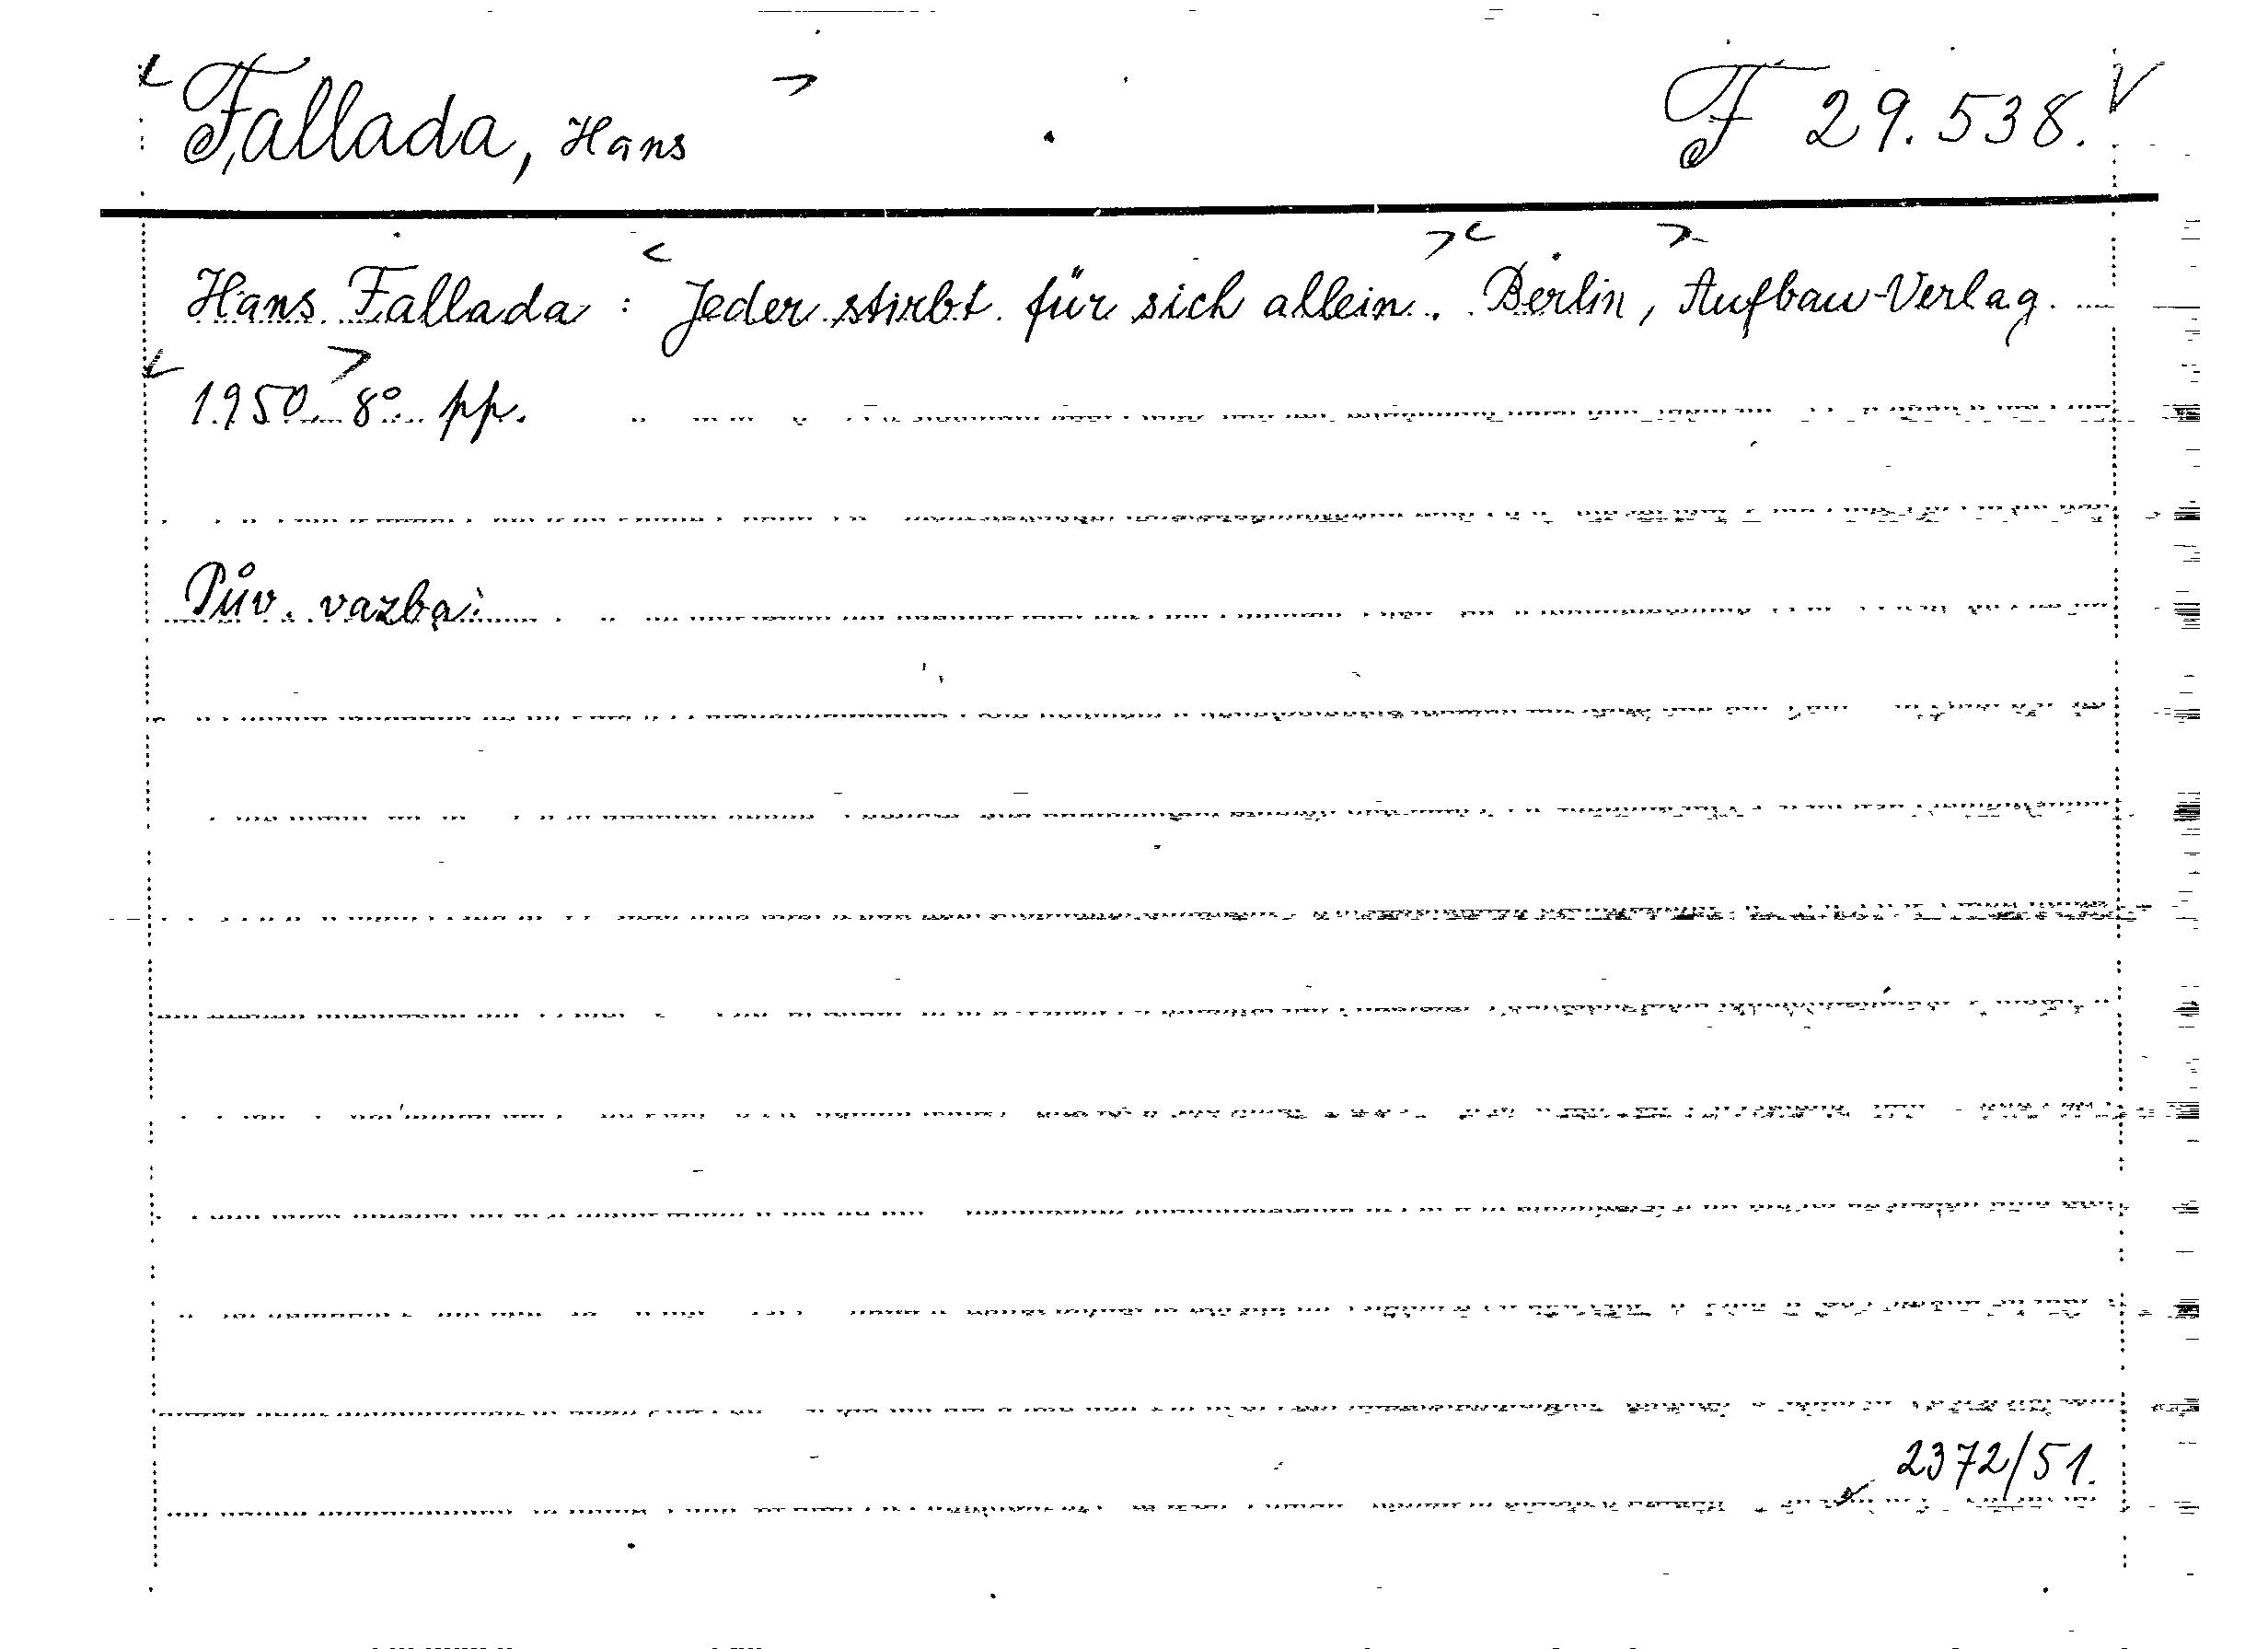 Fallada, Hans F 29.538.
Hans Fallada : Jeder stirbt für sich allein. Berlin, Aufbau-Verlag.
1950. 8° pp.
Pův. vazba.
2372/51.